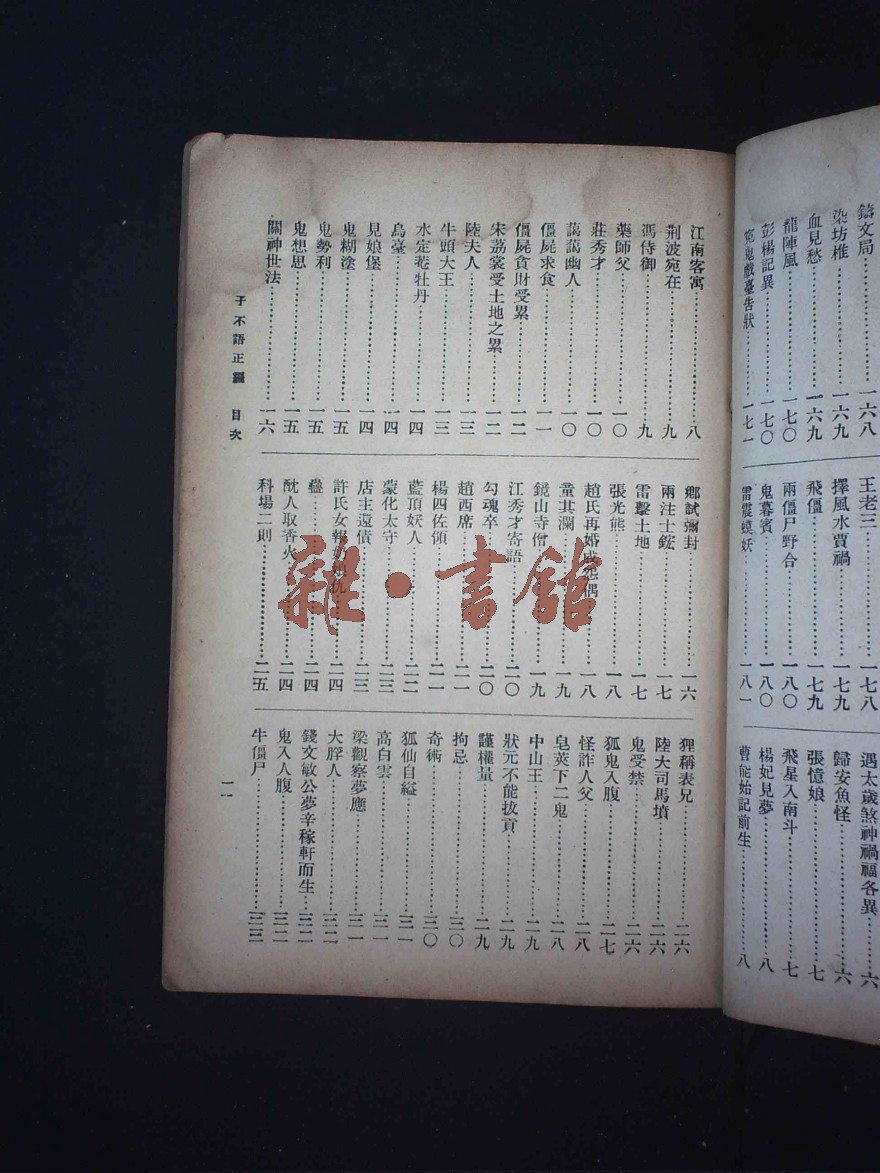 鑄文局……一六八
染坊椎……一六九
血見愁……一六九
龍陣風……一七〇
彭楊記異……一七〇
冤鬼戲臺告狀……一七一
王老三……一七八
擇風水賈禍……一七九
飛僵……一七九
兩僵尸野合……一八〇
鬼暮賓……一八〇
雷震蟆妖……一八一
遇太歲煞神禍福各異……六
歸安魚怪……六
張憶娘……七
飛星入南斗……七
楊妃見夢……八
曹能始記前生……八
江南客寓……八
荆波宛在……九
馮侍御……九
藥師父……一〇
莊秀才……一〇
藹藹幽人……一〇
僵屍求食……一一
僵屍貪財受累……一二
宋荔裳受土地之累……一二
陸夫人……一三
牛頭大王……一三
水定菴牡丹……一四
烏臺……一四
見娘堡……一四
鬼糊塗……一五
鬼勢利……一五
鬼想思……一五
關神世法……一六
鄉試彌封……一六
兩注士鋐……一七
雷擊土地……一七
張光熊……一八
趙氏再婚成怨偶……一八
童其瀾……一九
鏡山寺僧……一九
江秀才寄語……二〇
勾魂卒……二〇
趙西席……二一
楊四佐領……二一
藍頂妖人……二二
蒙化太守……二三
店主還債……二三
許氏女報奶娘仇……二四
蠱……二四
酖人取香火……二四
科場二則……二五
狸稱表兄……二六
陸大司馬墳……二六
鬼受禁……二六
狐鬼入腹……二七
怪詐人父……二八
皂莢下二鬼……二八
中山王……二九
狀元不能拔貢……二九
謹權量……二九
拘忌……三〇
奇術……三〇
狐仙自縊……三一
高白雲……三一
梁觀察夢應……三一
大胖人……三二
錢文敏公夢辛稼軒而生……三二
鬼入人腹……三二
牛僵尸……三三
子不語正編 目次
一一
雜·書館